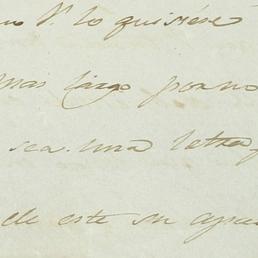 no V. lo quisiere
mas largo por no
sea una letra
de este su